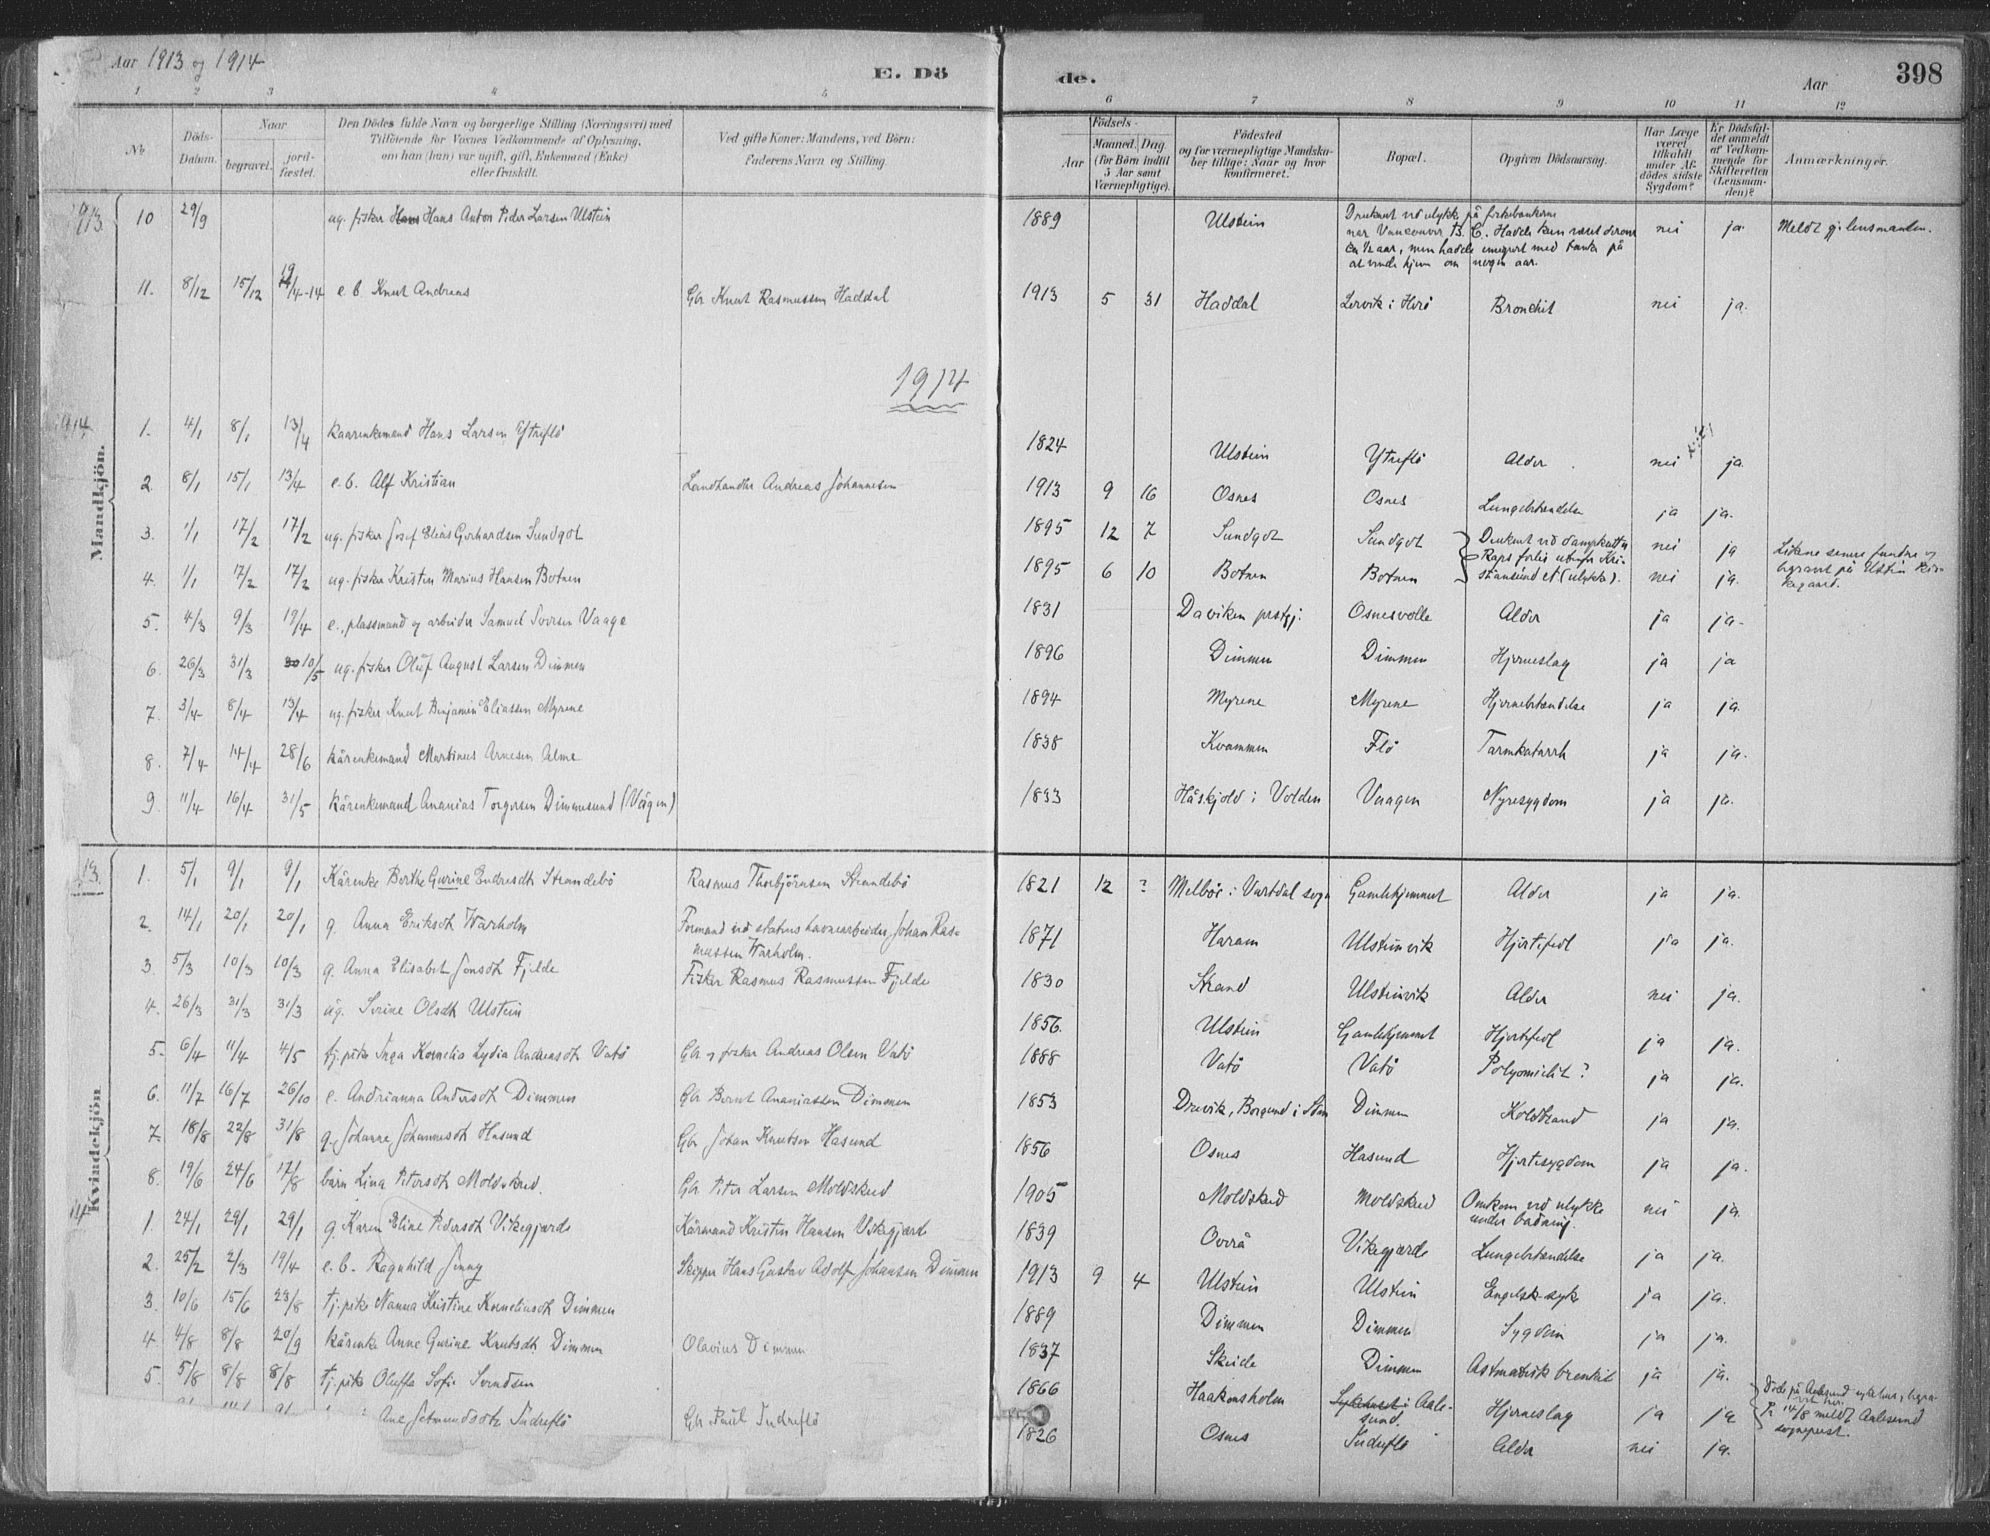 Aar 1913 og 1914
E. Dö de.
Aar
398
1 2 3 4 5 6 7 8 9 10 11 12
No.
Döds-Datum.
Naar
begravet.
jord-fæstet.
Den Dödes fulde Navn og borgerlige Stilling (Næringsvei) med
Tilföiende for Voxnes Vedkommende af Oplysning,
om han (hun) var ugift, gift, Enkemand (Enke)
eller fraskilt.
Ved gifte Koner: Mandens, ved Börn:
Faderens Navn og Stilling
Födsels-
Aar
Maaned. Dag
(for Börn indtil
5 Aar samt
Værnepligtige).
Födested
og for værnepligtige Mandska-
ber tillige: Naar og hvor
konfirmeret.
Bopæl.
Opgiven Dödsaarsag.
Har Læge
været
tilkaldt
under Af-
dödes sidste
Sygdom?
Er Dödsfal-
det anmeldt
af Vedkom-
mende for
Skifteretten
(Lensman-
den)?
Anmærkninger.
Mandkjön.
1913
10 29/9 ug. fisker Hans Anton Peder Larsen Ulstein 1889 Ulstein Druknet ved ulykke på fiskebankerne nei ja Meldt gj. lensmanden.
nær Vancouver B. C. Hadde kun været derom
ca 1/2 aar, men hadde emigrert med tanke på
at vende hjem om nogen aar.
11. 8/12 15/12 19/4-14 e. b. Knut Andreas Gbr Knut Rasmussen Haddal 1913 5 31 Haddal Lervik i Herö Bronchit nei ja.
1914
1914
1. 4/1 8/1 13/4 kaarenkemand Hans Larsen Ytreflö 1824 Ulstein Ytreflö Alder nei ja
2. 8/1 15/1 13/4 e. b. Alf Kristian Landhandler Andreas Johannesen 1913 9 16 Osnes Osnes Lungebetændelse ja ja.
3. 1/1 17/2 17/2 ug. fisker Josef Elias Gerhardsen Sundgot 1895 12 7 Sundgot Sundgot Druknet ved dampkutter nei ja Likene senere fundne og
4. 1/1 17/2 17/2 ug. fisker Kristen Marius Hansen Botnen 1895 6 10 Botnen Botnen Raps forlis utenfor Kri-
stiansund et (ulykke). nei ja. begravet på Ulstein kir-
kegaard.
5. 4/3 9/3 19/4 e., plassmand og arbeider Samuel Iversen Vaage 1831 Daviken prstgj. Osnesvolle Alder ja ja-
6. 26/3 31/3 10/5 ug. fisker Oluf August Larsen Dimmen 1896 Dimmen Dimmen Hjerneslag ja ja
7. 3/4 8/4 13/4 ug. fisker Knut Benjamin Eliassen Myrene 1894 Myrene Myrene Hjernebetændelse ja ja.
8. 7/4 14/4 28/6 kårenkemand Martinus Arnesen Alme 1838 Kvammen Flö Tarmkatarrh ja ja.
9. 11/4 16/4 31/5 kårenkemand Ananias Torgersen Dimmesund (Vågen) 1833 Håskjold i Volden Vaagen Nyresygdom ja ja.
Kvindekjön
13.
1. 5/1 9/1 9/1 Kårenke Berthe Gurine Endresdt Strandebö Rasmus Thorbjörnsen Strandebö 1821 12 ? Melbös i Vartdal sogn Gamlehjemmet Alder ja ja.
2. 14/1 20/1 20/1 g. Anna Eriksdt Warholm Formand ved statens havnearbeider, Johan Ras-
mussen Warholm. 1871 Haram Ulsteinvik Hjertefeil ja ja.
3. 5/3 10/3 10/3 g. Anna Elisabet Jonsdt Fjelde Fisker Rasmus Rasmussen Fjelde 1830 Strand Ulsteinvik Alder nei ja.
4. 26/3 31/3 31/3 ug. Serine Olsdt Ulstein 1856. Ulstein Gamlehjemmet Hjertefeil ja ja.
5. 6/4 11/4 4/5 tj. pike Inga Kornelia Lydia Andreasdt Vatö Gbr og fisker Andreas Olsen Vatö 1888 Vatö Vatö Polyomielit? ja ja.
6. 11/7 16/7 26/10 e. Andrianna Andersdt Dimmen Gbr Bernt Ananiassen Dimmen 1853 Drevik, Borgund i Sdm Dimmen Koldbrand ja ja.
7. 18/8 22/8 31/8 g. Johanne Johannesdt Hasund Gbr Johan Knutsen Hasund 1856 Osnes Hasund Hjertesygdom ja ja.
8. 19/6 24/6 17/8 barn Lina Petersdt Moldskred. Gbr Peter Larsen Moldskred 1905 Moldskred Moldskred Omkom ved ulykke
under badning. nei ja.
14
1. 24/1 29/1 29/1 g. Karen Eline Pedersdt Vikegjærde Kårmand Kristen Hansen Vikegjærde 1839 Ovrå Vikegjærde Lungebetændelse ja ja.
2. 25/2 2/3 19/4 e. b. Ragnhild Jenny Skipper Hans Gustav Adolf Johansen Dimmen 1913 9 4 Ulstein Ulstein Engelsk syke ja ja.
3. 10/6 15/6 23/8 tj. pike Nanna Kristine Korneliusdt Dimmen 1889 Dimmen Dimmen Sygdom ja ja.
4. 4/8 8/8 20/9 kårenke Anne Gurine Knutsdt. Dimmen Olavius Dimmen 1837 Skeide Dimmen Astmatisk bronkit ja ja.
5. 5/8 8/8 8/8 tj. pike Oluffa Sofie Svendsen 1866 Haakonsholm Sykehuset i Aale-
sund. Hjerneslag ja ja Döde på Aalesund sykehus, begra-
vet her.
Pr 14/8 meldt Aalesund
sogneprest.
Ane Jetmundsdtr Indreflö Gbr Paul Indreflö 1826 Osnes Indreflö Alder nei ja.